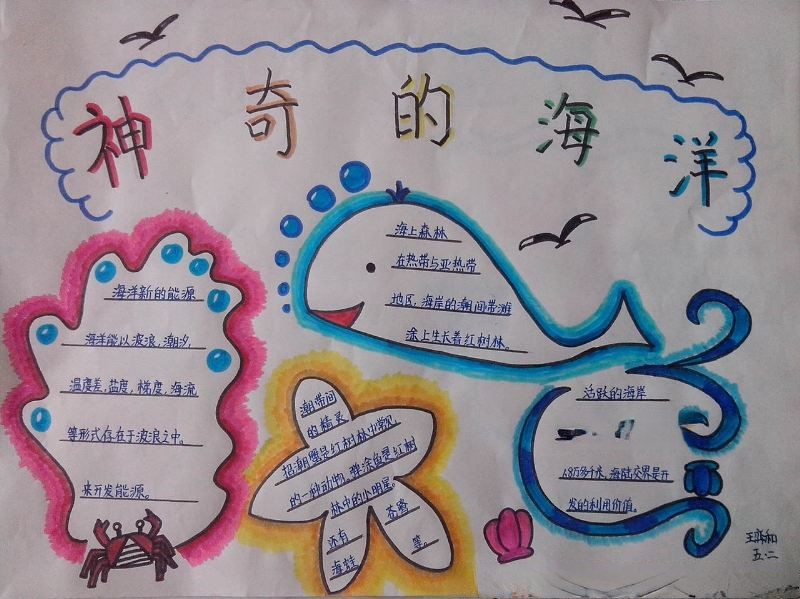 神奇的海洋
海洋新的能源
海洋能以波浪,潮汐,
温度差,盐度,梯度,海流
等形式存在于波浪之中。
来开发能源。
海上森林
在热带与亚热带
地区,海岸的潮间带滩
涂上生长着红树林。
潮带间
的精灵
招潮蟹是红树林中常见
的一种动物,弹涂鱼是红树
林中的小明星。
还有
海蛙
等。
活跃的海岸
1.8万多千米,海陆交界是开
发的利用价值。
五.二